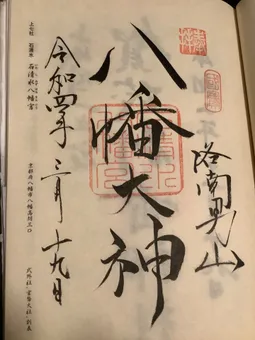 洛南男山
八幡大神
令和四年 三月 十九日
上七社
石清水八幡宮
京都府八幡市八幡高坊三〇